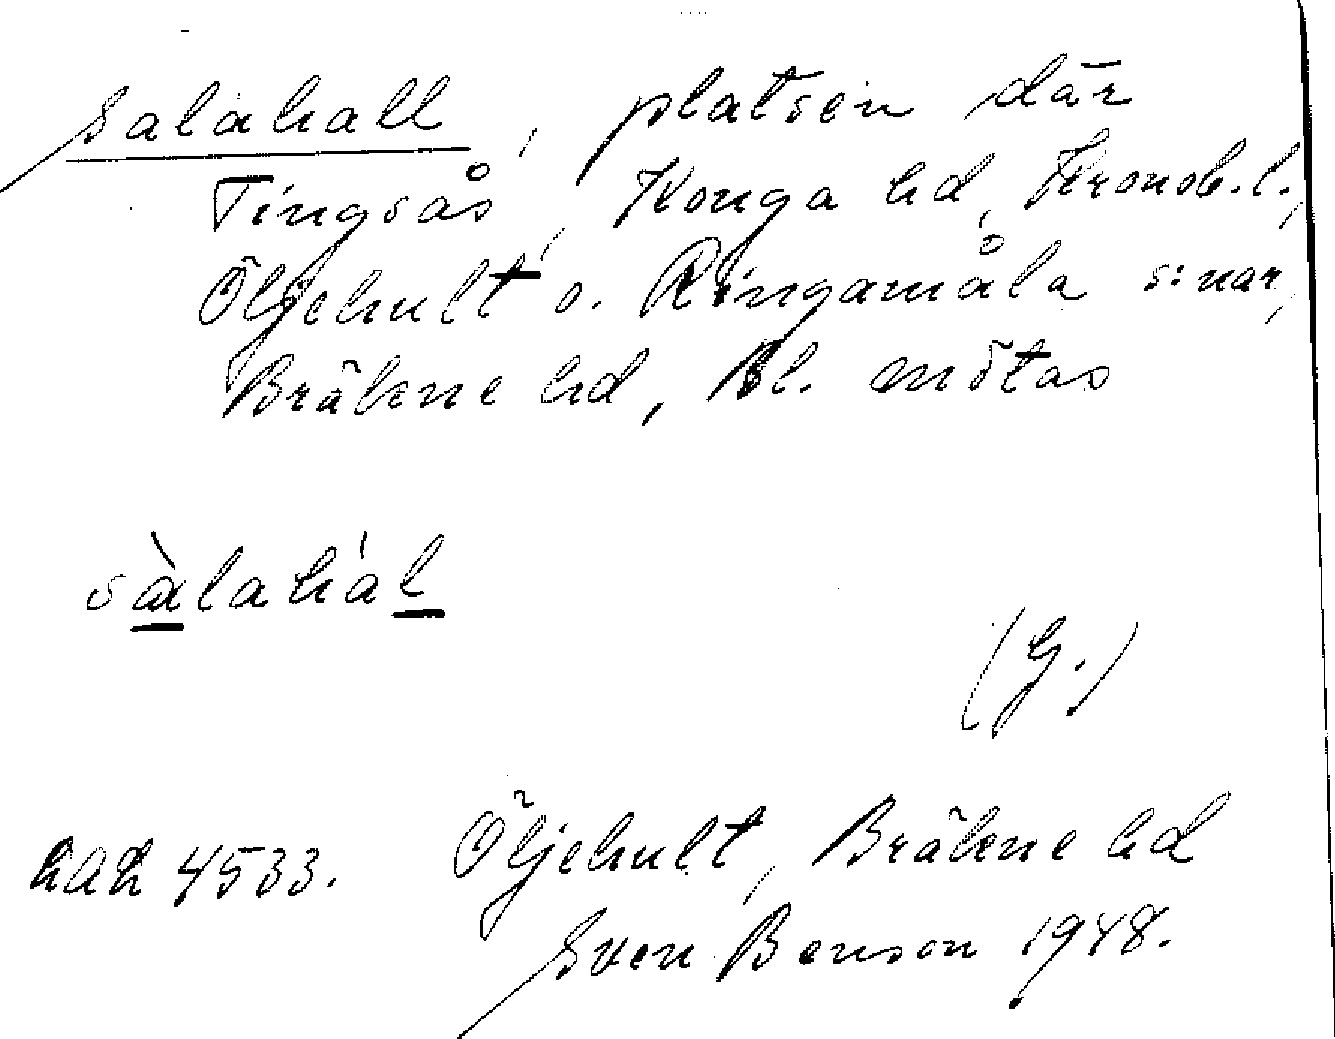 Salahall, platsen där
Tingsås, Konga hd, Kronob. l.,
Öljehult o. Ringamåla s:nar,
Bräkne hd, Bl. mötas
sàlahál
(G.)
LAL 4533. Öljehult, Bräkne hd
Sven Benson 1948.